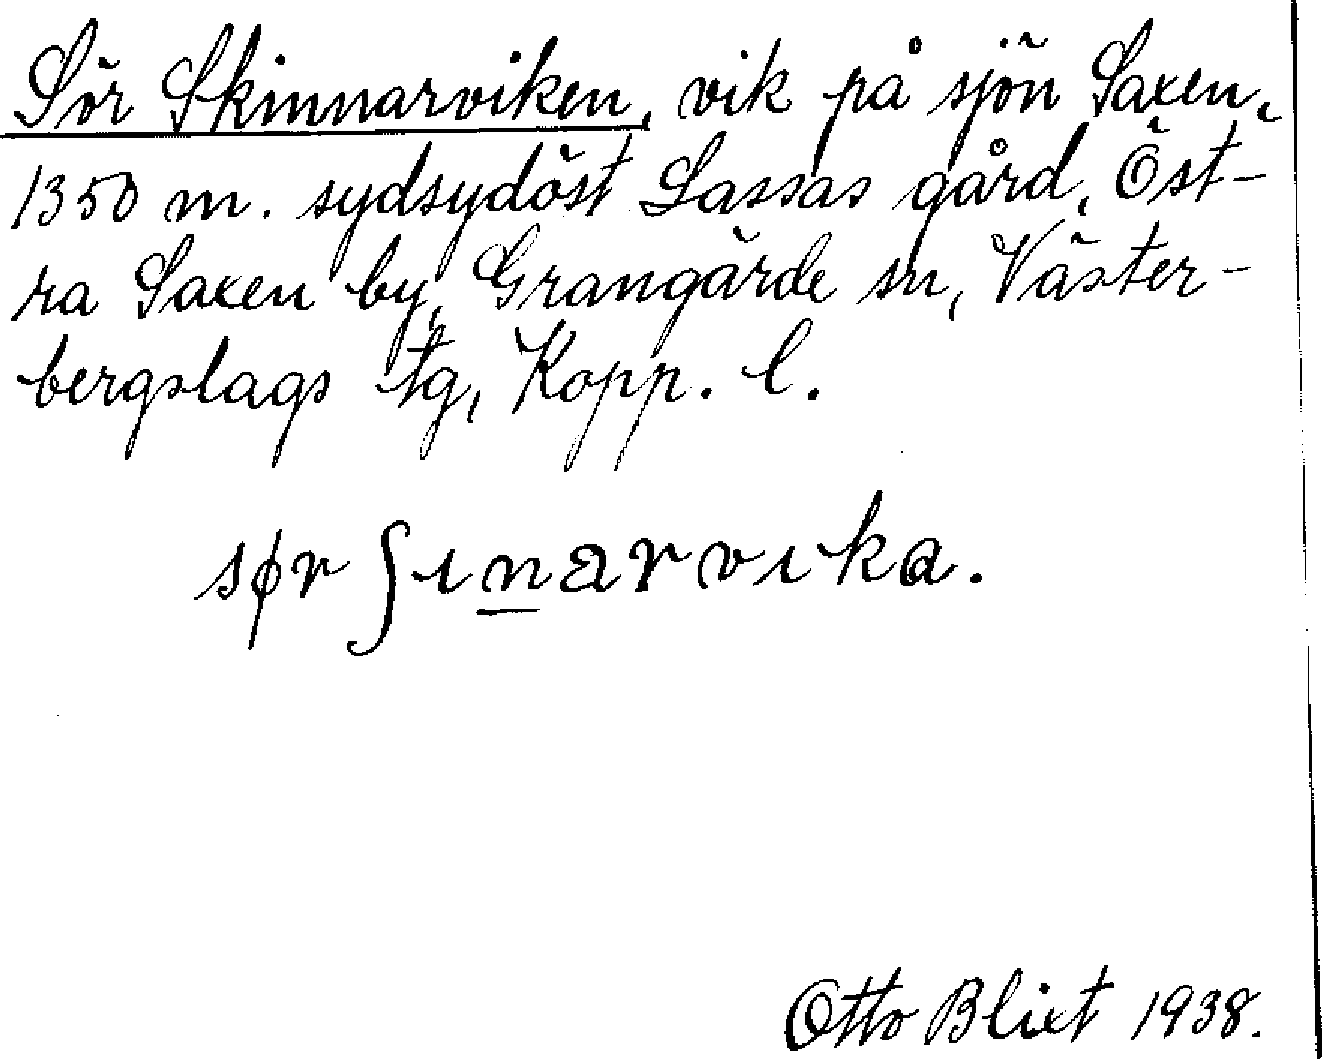 Sör Skinnarviken, vik på sjön Saxen,
1350 m. sydsydöst Lassas gård, Öst-
ra Saxen by, Grangärde sn, Väster-
bergslags tg, Kopp. l.
sør ʃınarvıka.
Otto Blixt 1938.